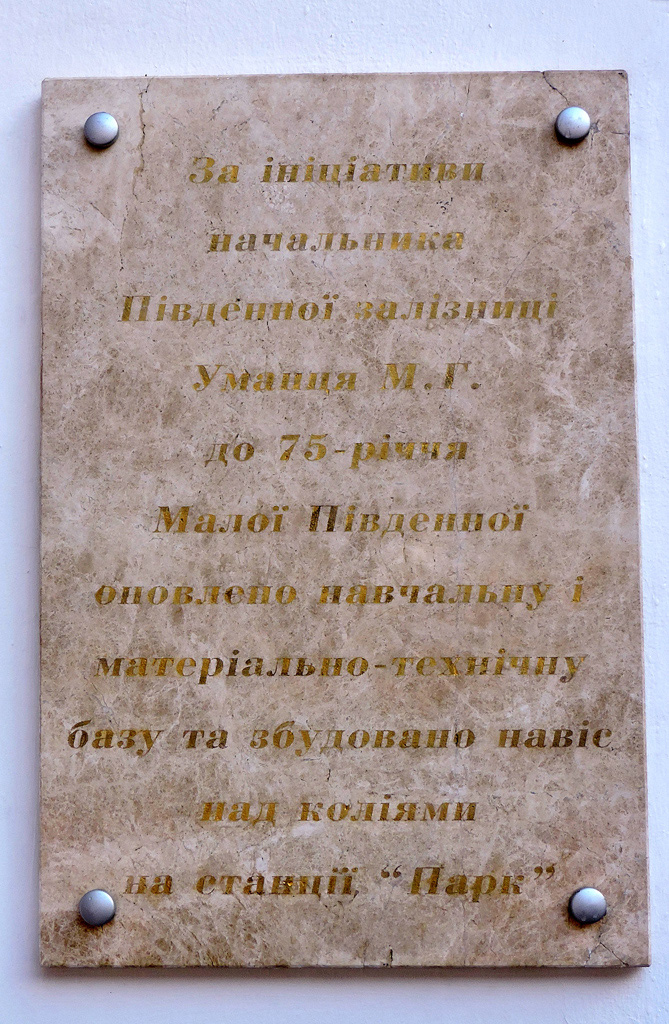 За ініціативи
начальника
Південної залізниці
Уманця М.Г.
до 75-річчя
Малої Південної
оновлено навчальну і
матеріально-технічну
базу та збудовано навіс
над коліями
на станції “Парк”